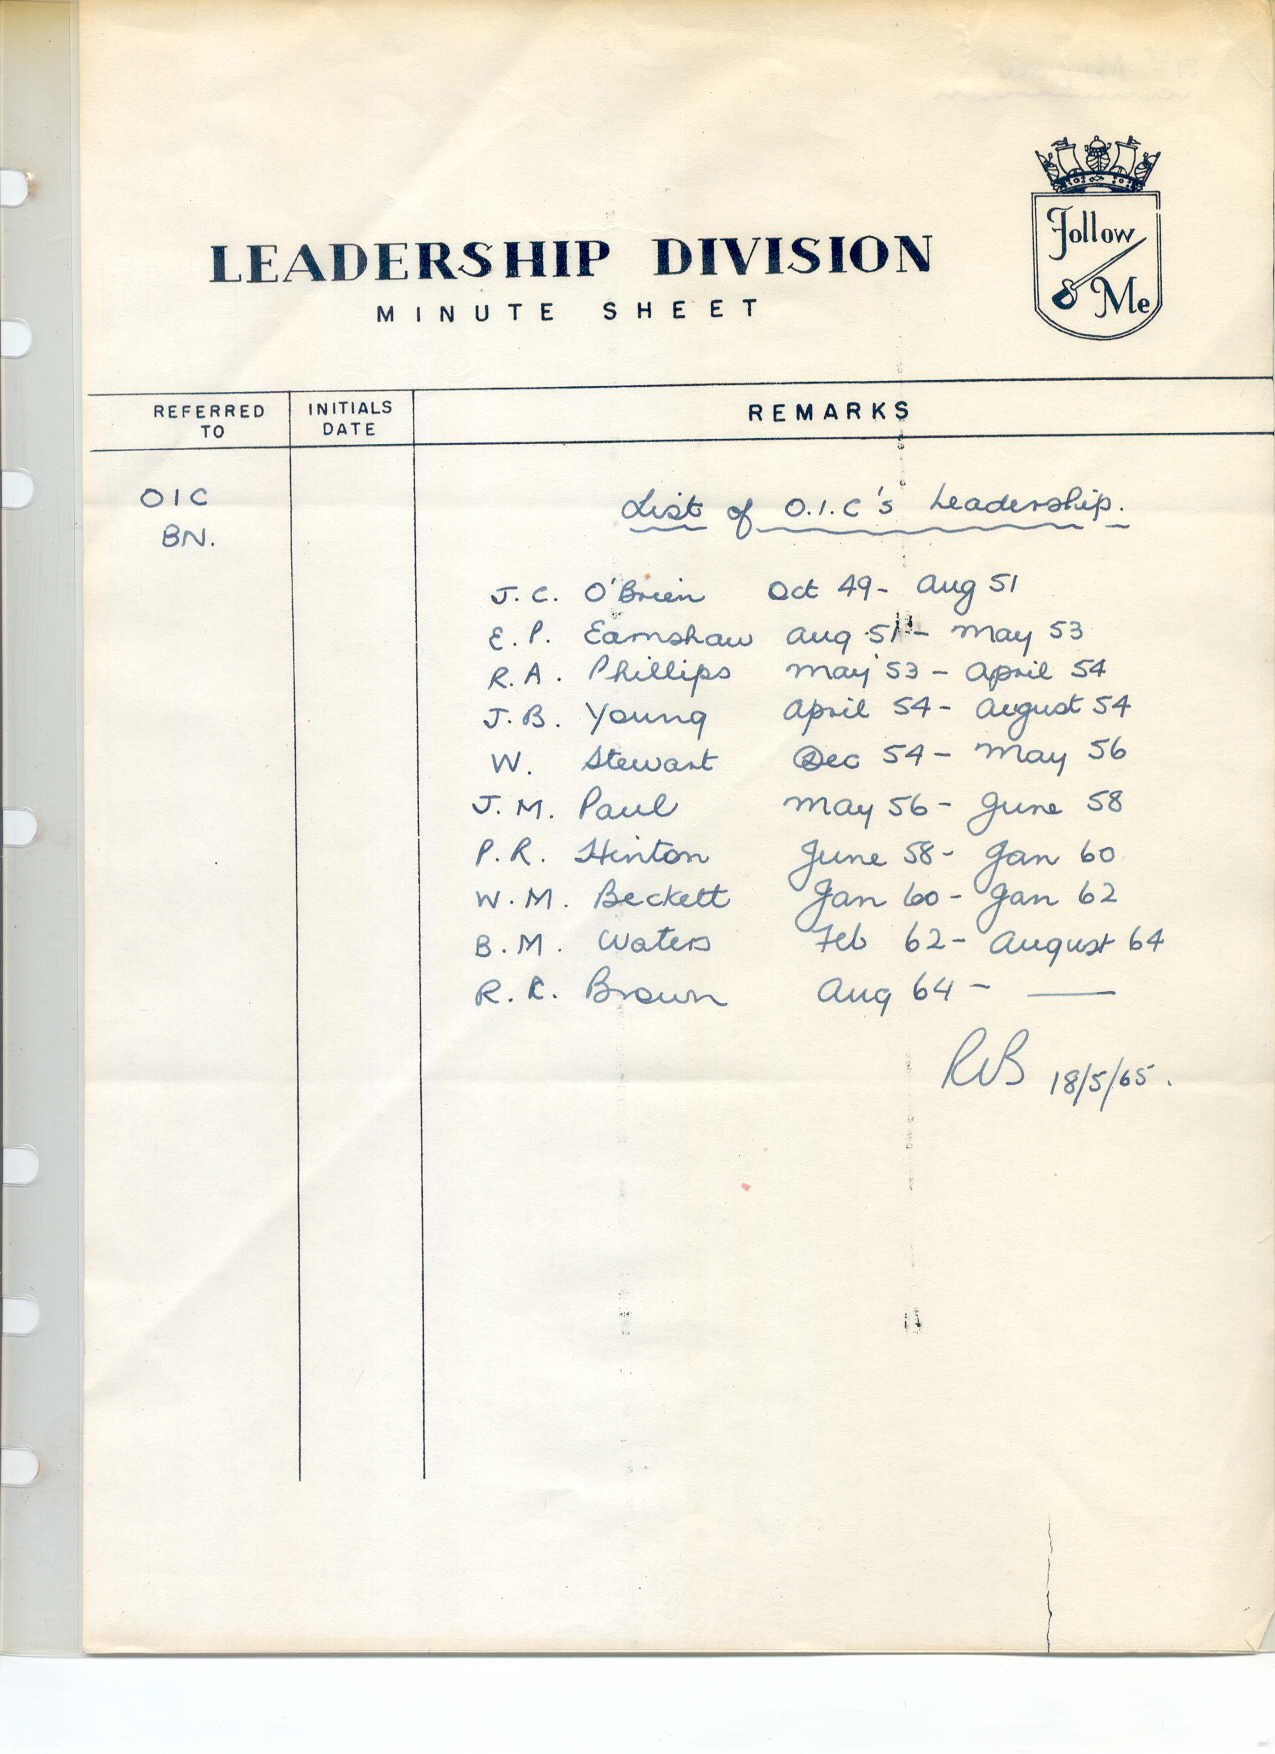 Follow
Me
LEADERSHIP DIVISION
MINUTE SHEET
REFERRED TO
INITIALS DATE
REMARKS
OIC
BN.
List of O.I.C's Leadership.
J. C. O'Brien Oct 49 - Aug 51
E. P. Earnshaw Aug 51 - May 53
R. A. Phillips May 53 - April 54
J. B. Young April 54 - August 54
W. Stewart Dec 54 - May 56
J. M. Paul May 56 - June 58
P. R. Hinton June 58 - Jan 60
W. M. Beckett Jan 60 - Jan 62
B. M. Waters Feb 62 - August 64
R. R. Brown Aug 64 - —
18/5/65.